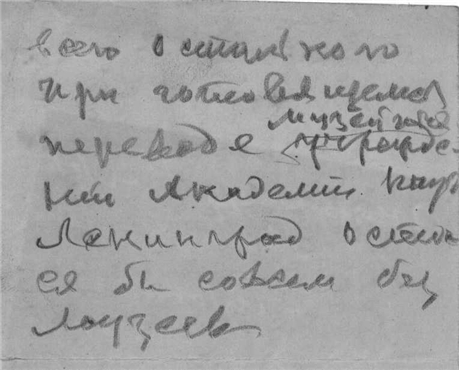 всего остального
при готовящемся
музейных
переводе учрежде-
ний Академии наук
Ленинград остал-
ся бы совсем без
музеев